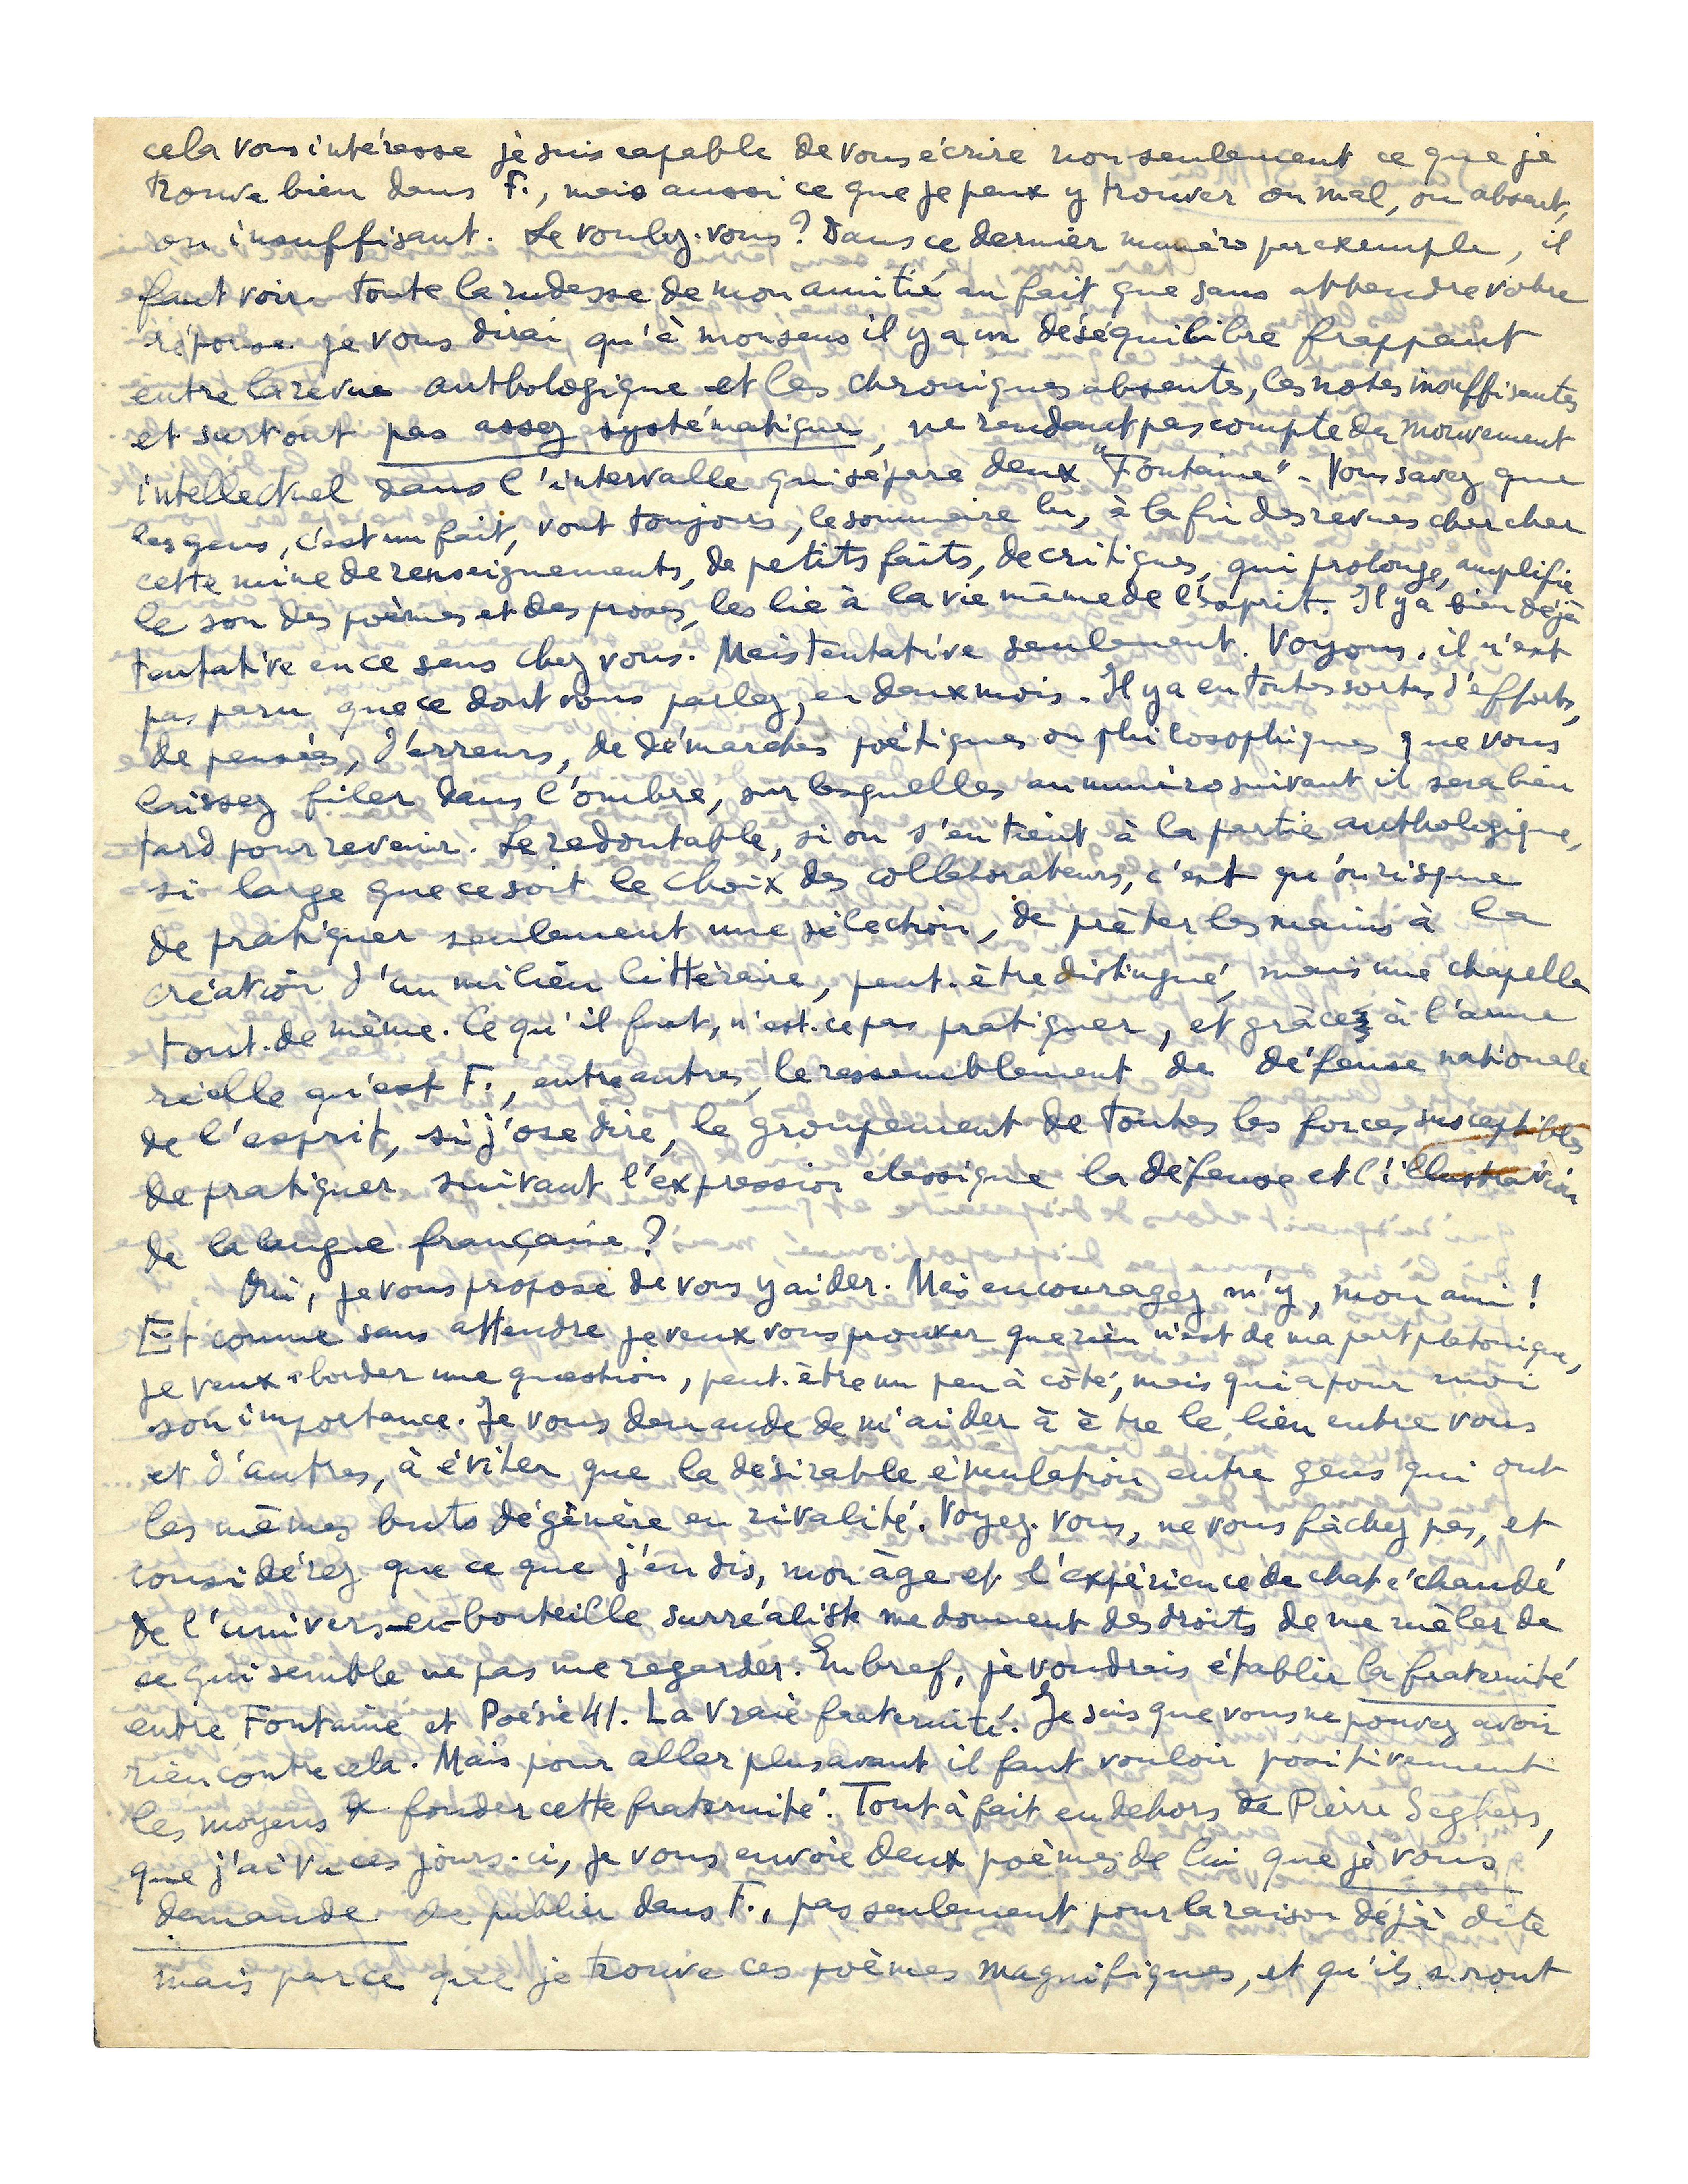 cela vous intéresse je suis capable de vous écrire non seulement ce que je
trouve bien dans F., mais aussi ce que je peux y trouver ou mal, ou absent,
ou insuffisant. Le voulez-vous? Dans ce dernier numéro par exemple, il
faut voir toute la rudesse de mon amitié au fait que sans attendre votre
réponse je vous dirai qu'à mon sens il y a un déséquilibre frappant
entre la revue anthologique et les chroniques absentes, les notes insuffisantes
et surtout pas assez systématiques, ne rendant pas compte du mouvement
intellectuel dans l'intervalle qui sépare deux "Fontaine". Vous savez que
les gens, c'est un fait, vont toujours, le sommaire lu, à la fin des revues chercher
cette mine de renseignements, de petits faits, de critiques, qui prolonge, amplifie
le son des poèmes et des proses, les lie à la vie même de l'esprit. Il y a bien déjà
tentative en ce sens chez vous. Mais tentative seulement. Voyons, il n'est
pas paru que ce dont vous parlez, en deux mois. Il y a eu toutes sortes d'efforts,
de pensées, d'erreurs, de démarches poétiques ou philosophiques que vous
laissez filer dans l'ombre, sur lesquelles au numéro suivant il sera bien
tard pour revenir. Le redoutable, si on s'en tient à la partie anthologique,
si large que ce soit le choix des collaborateurs, c'est qu'on risque
de pratiquer seulement une sélection, de prêter les mains à la
création d'un milieu littéraire, peut-être distingué, mais une chapelle
tout-de même. Ce qu'il faut, n'est-ce pas pratiquer, et grâce à l'arme
réelle qu'est F., entre autres, le rassemblement de défense nationale
de l'esprit, si j'ose dire, le groupement de toutes les forces susceptibles
de pratiquer suivant l'expression classique la défense et l'illustration
de la langue française?
Oui, je vous propose de vous y aider. Mais encouragez m'y, mon ami!
Et comme sans attendre je veux vous prouver que rien n'est de ma part platonique,
je veux aborder une question, peut-être un peu à côté, mais qui a pour moi
son importance. Je vous demande de m'aider à être le lien entre vous
et d'autres, à éviter que la désirable émulation entre gens qui ont
les mêmes buts dégénère en rivalité. Voyez-vous, ne vous fâchez pas, et
considérez que ce que j'en dis, mon âge et l'expérience de chat échaudé
de l'univers-en-bouteille surréaliste me donnent des droits de me mêler de
ce qui semble ne pas me regarder. En bref, je voudrais établir la fraternité
entre Fontaine et Poésie 41. La vraie fraternité. Je sais que vous ne pouvez avoir
rien contre cela. Mais pour aller plus avant il faut vouloir positivement
les moyens de fonder cette fraternité. Tout à fait en dehors de Pierre Seghers,
que j'ai vu ces jours-ci, je vous envoie deux poèmes de lui que je vous
demande de publier dans F., pas seulement pour la raison déjà dite
mais parce que je trouve ces poèmes magnifiques, et qu'ils seront